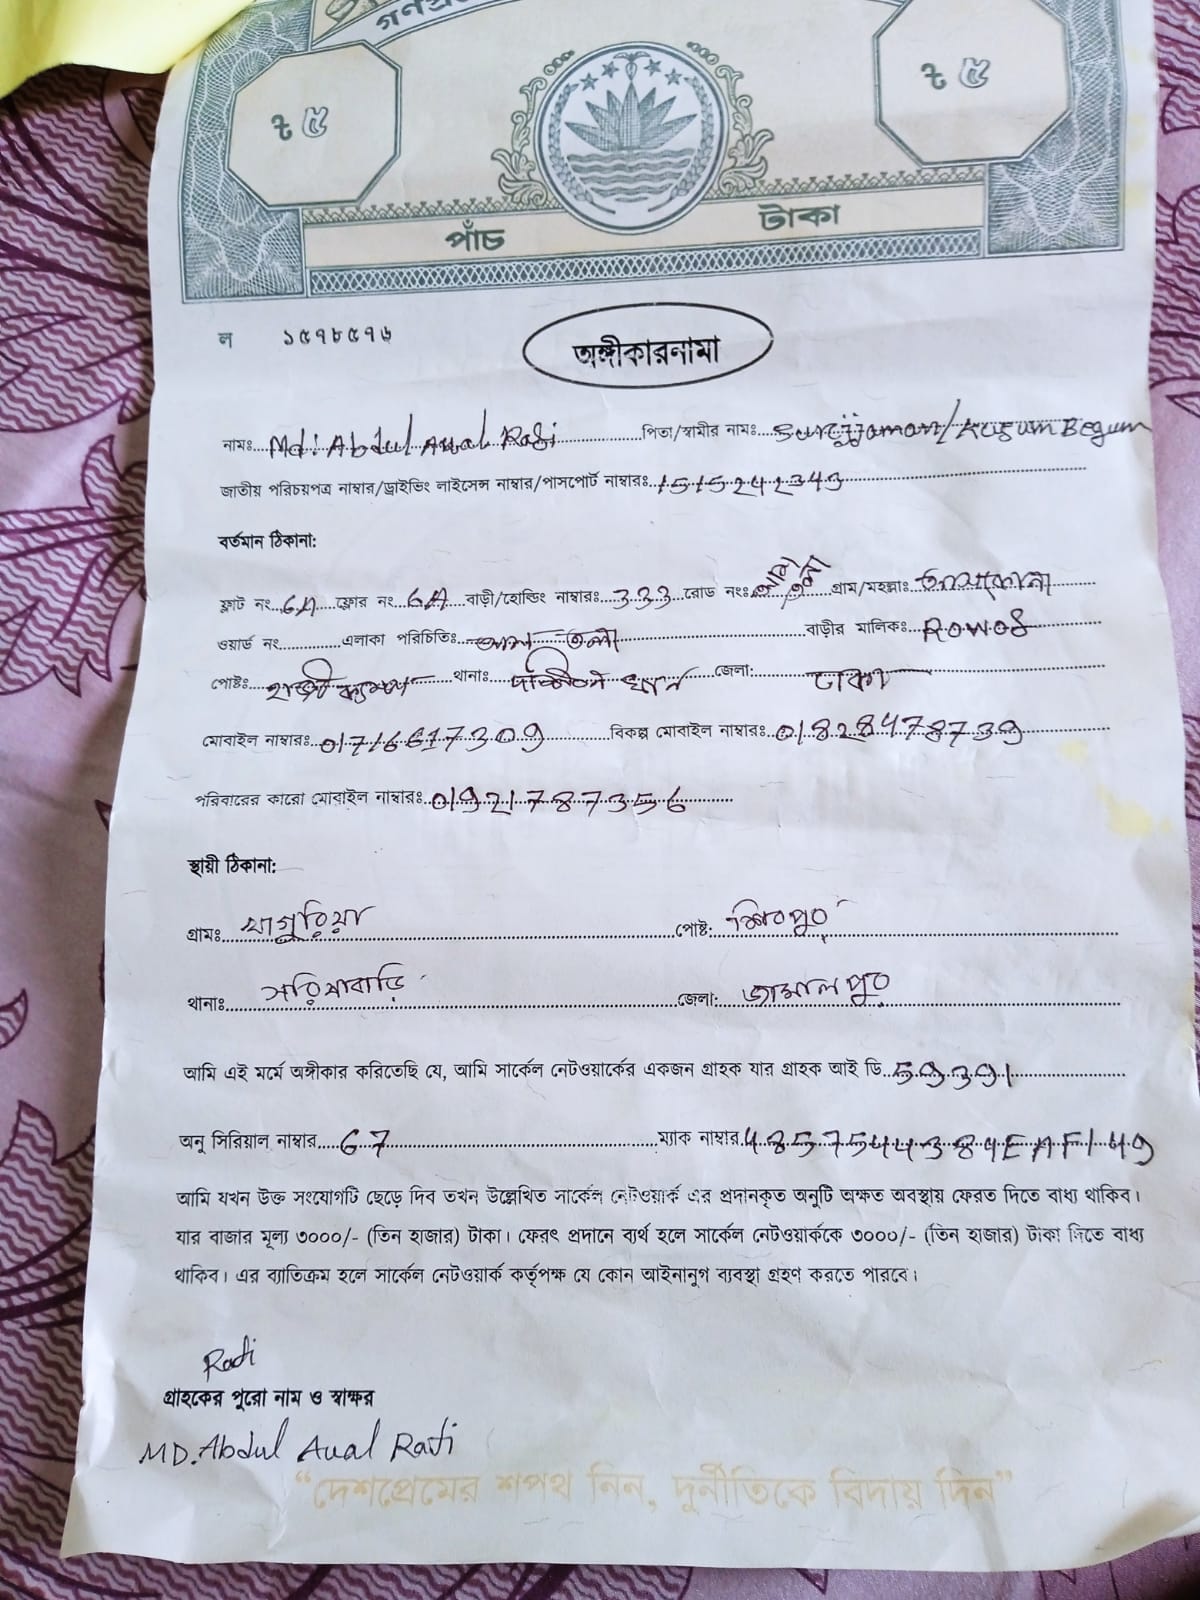 গণপ্র
৳ ৫
৳ ৫
পাঁচ টাকা
ল ১৫৭৮৫৭৬
অঙ্গীকারনামা
নামঃ Md: Abdul Awal Rafi পিতা/স্বামীর নামঃ Begum
জাতীয় পরিচয়পত্র নাম্বার/ড্রাইভিং লাইসেন্স নাম্বার/পাসপোর্ট নাম্বারঃ 1515242343
বর্তমান ঠিকানা:
ফ্লাট নং 6A ফ্লোর নং 6A বাড়ী/হোল্ডিং নাম্বারঃ 333 রোড নংঃ গ্রাম/মহল্লাঃ
ওয়ার্ড নং এলাকা পরিচিতিঃ বাড়ীর মালিকঃ
পোষ্টঃ থানাঃ জেলা: ঢাকা
মোবাইল নাম্বারঃ 01716617309 বিকল্প মোবাইল নাম্বারঃ 01828478739
পরিবারের কারো মোবাইল নাম্বারঃ 01921787356
স্থায়ী ঠিকানা:
গ্রামঃ পোষ্ট: শিবপুর
থানাঃ সরিষাবাড়ি জেলা: জামালপুর
আমি এই মর্মে অঙ্গীকার করিতেছি যে, আমি সার্কেল নেটওয়ার্কের একজন গ্রাহক যার গ্রাহক আই ডি 59391
অনু সিরিয়াল নাম্বার 67 ম্যাক নাম্বার 4857544384EAF149
আমি যখন উক্ত সংযোগটি ছেড়ে দিব তখন উল্লেখিত সার্কেল নেটওয়ার্ক এর প্রদানকৃত অনুটি অক্ষত অবস্থায় ফেরত দিতে বাধ্য থাকিব।
যার বাজার মূল্য ৩০০০/- (তিন হাজার) টাকা। ফেরৎ প্রদানে ব্যর্থ হলে সার্কেল নেটওয়ার্ককে ৩০০০/- (তিন হাজার) টাকা দিতে বাধ্য
থাকিব। এর ব্যাতিক্রম হলে সার্কেল নেটওয়ার্ক কর্তৃপক্ষ যে কোন আইনানুগ ব্যবস্থা গ্রহণ করতে পারবে।
Rafi
গ্রাহকের পুরো নাম ও স্বাক্ষর
MD. Abdul Awal Rafi
“দেশপ্রেমের শপথ নিন, দুর্নীতিকে বিদায় দিন”